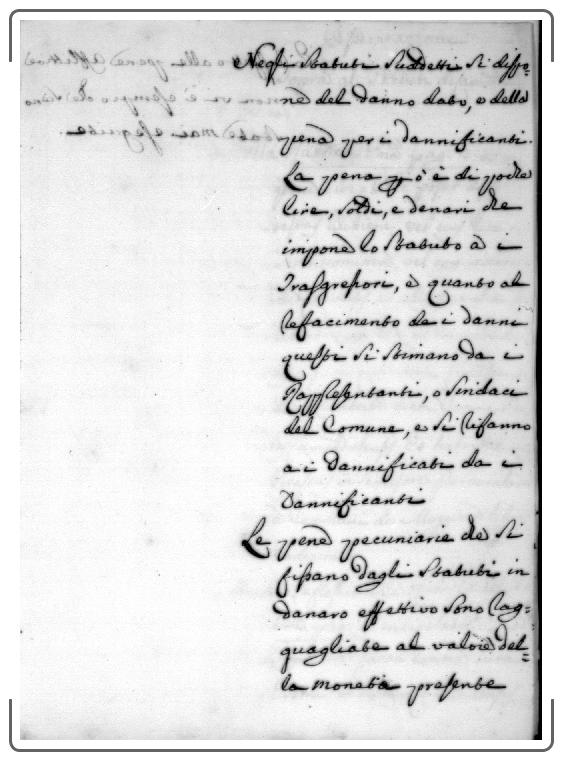 Negli Statuti suddetti si dispo=
ne del danno dato, e della
pena per i dannificanti.
La pena però è di poche
lire, soldi, e denari che
impone lo Statuto à i
Trasgressori, e quanto al
refacimento de i danni
questi si stimano da i
Rappresentanti, o sindaci
del Comune, e si rifanno
a i Dannificati da i
Dannificanti
Le pene pecuniarie che si
fissano dagli Statuti in
danaro effettivo sono rag=
guagliate al valore del=
la moneta presente